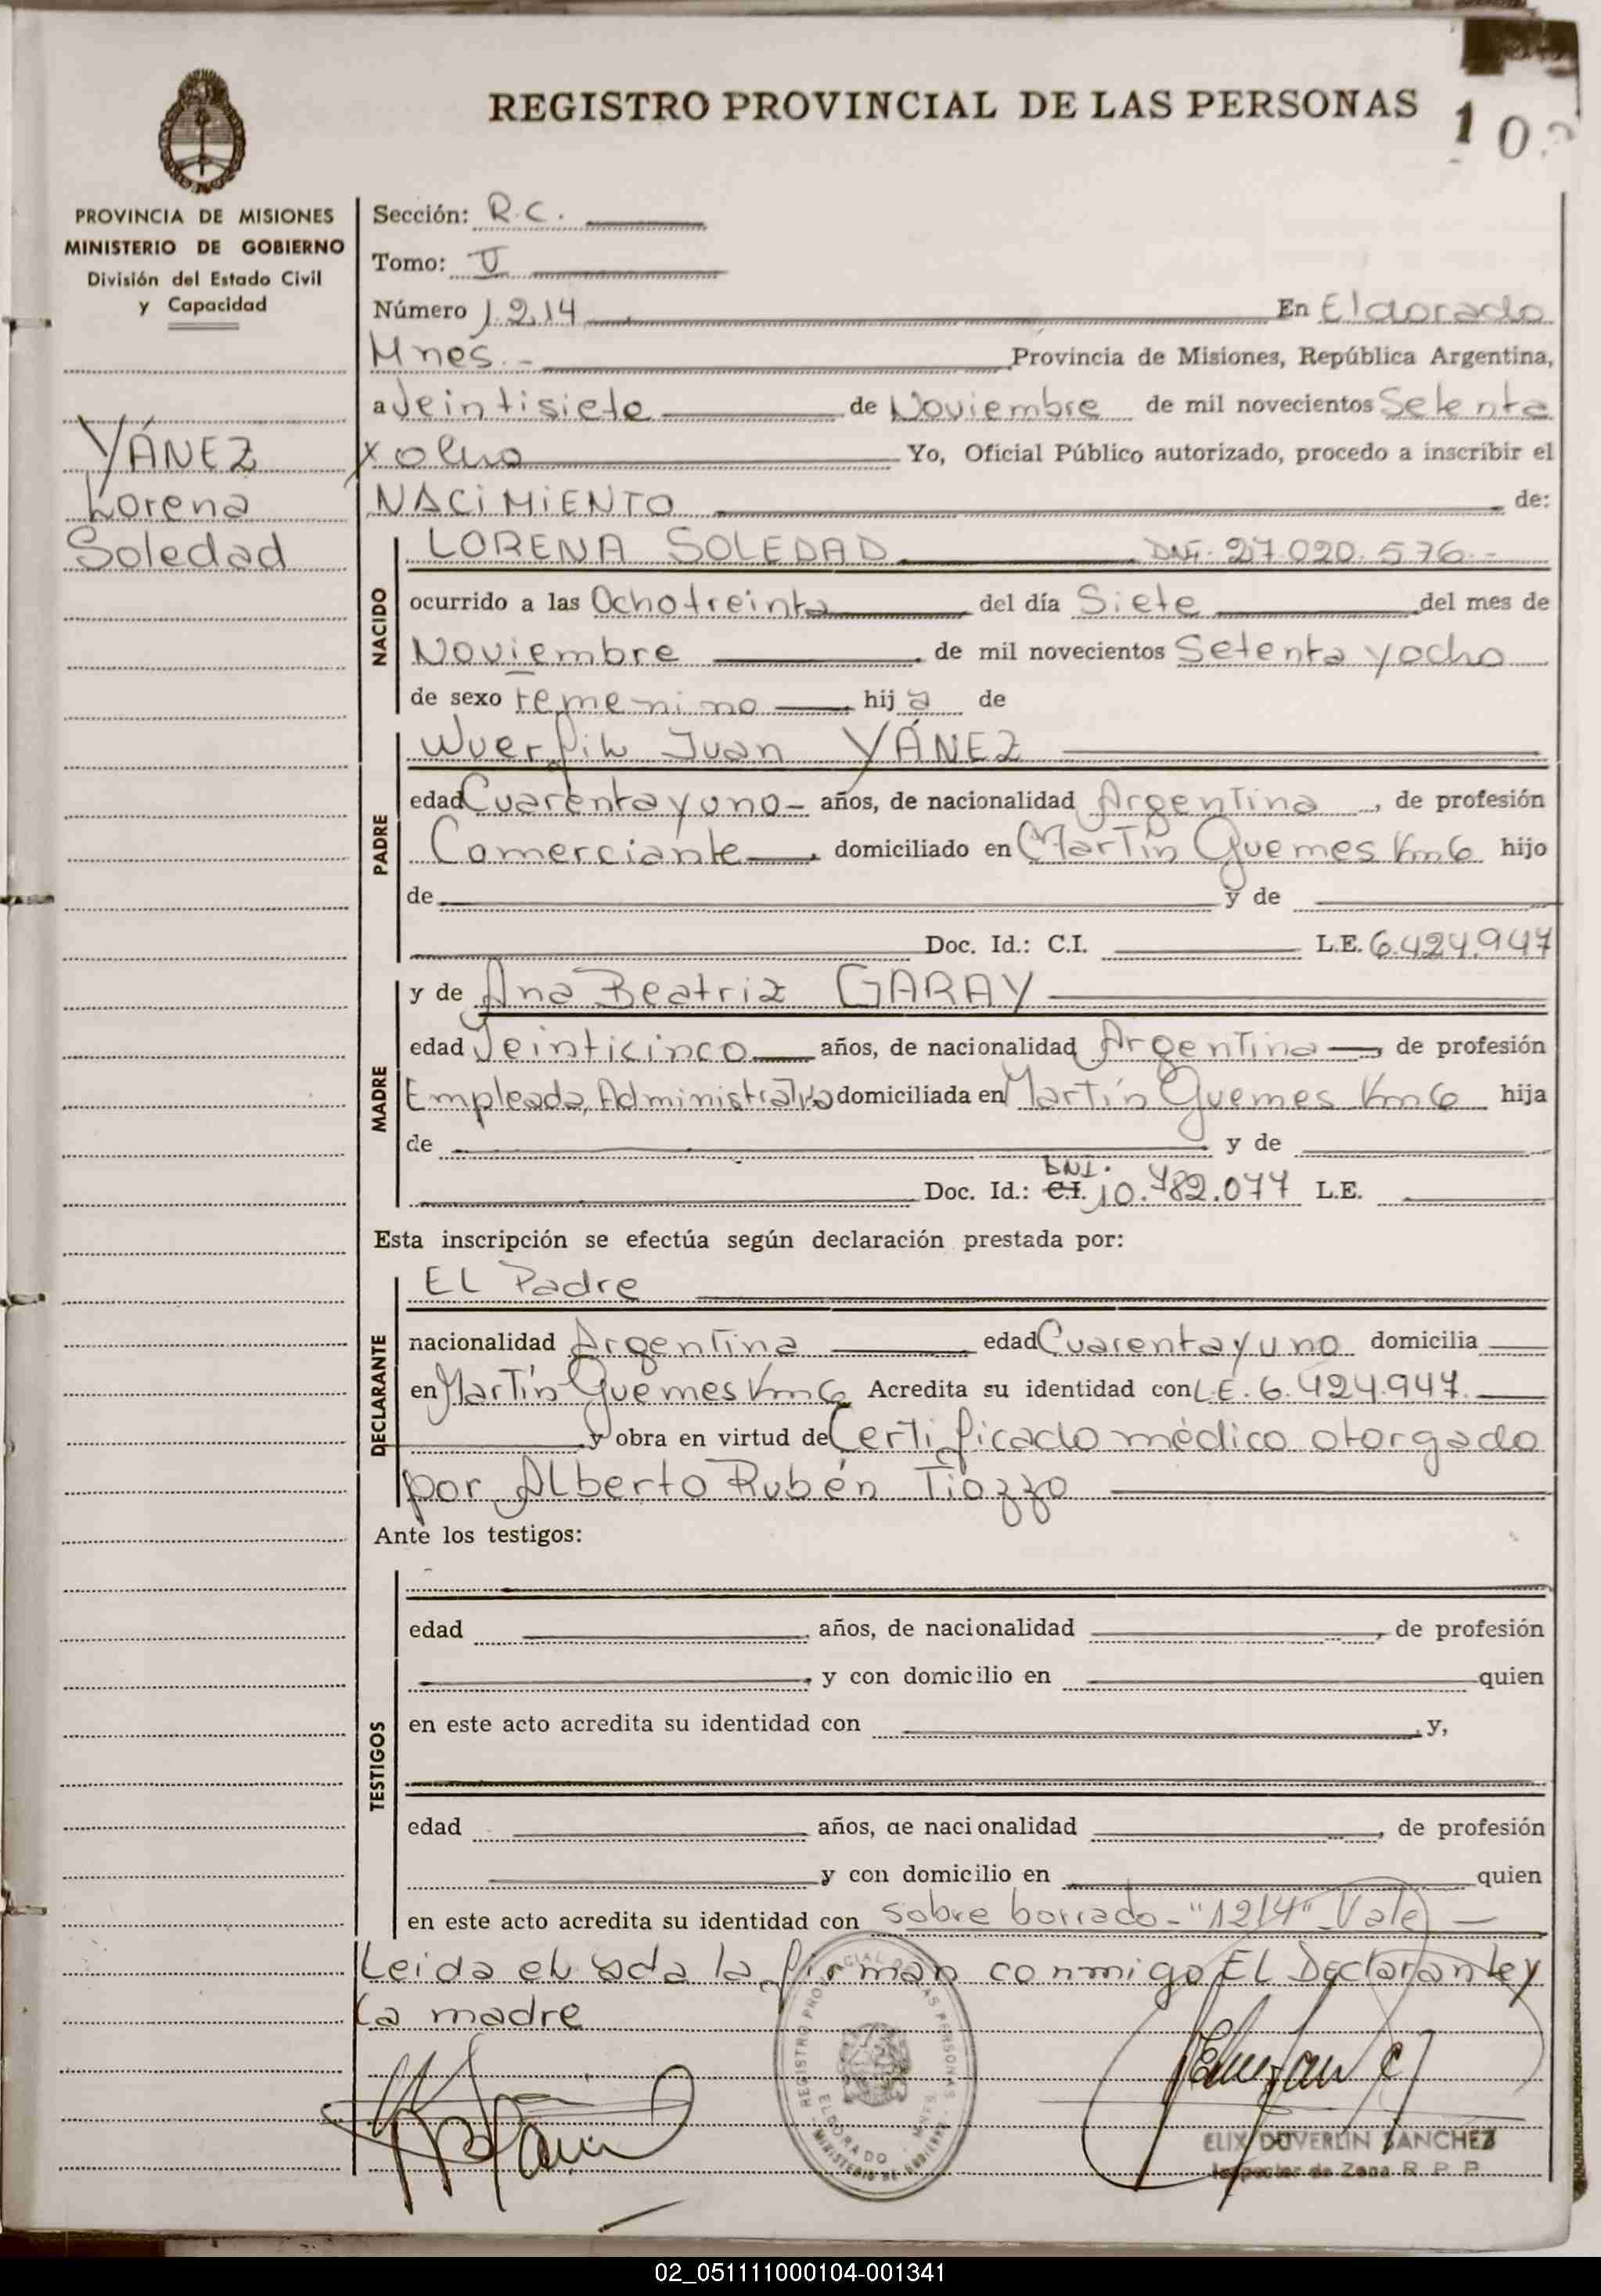 REGISTRO PROVINCIAL DE LAS PERSONAS
10
PROVINCIA DE MISIONES
MINISTERIO DE GOBIERNO
División del Estado Civil
y Capacidad
YÁNEZ
Lorena
Soledad
Sección: R.C.
Tomo: V
Número 1214 En Eldorado
Mnes.- Provincia de Misiones, República Argentina,
a Veintisiete de Noviembre de mil novecientos Setenta
y ocho Yo, Oficial Público autorizado, procedo a inscribir el
NACIMIENTO de:
NACIDO
LORENA SOLEDAD DNI. 27.020.576.-
ocurrido a las Ocho treinta del día Siete del mes de
Noviembre de mil novecientos Setenta y ocho
de sexo femenino hija de
PADRE
Juan YÁNEZ
edad Cuarenta y uno- años, de nacionalidad Argentina, de profesión
Comerciante, domiciliado en Martín Guemes Km 6 hijo
de y de
Doc. Id.: C.I. L.E. 6.424.947
MADRE
y de Ana Beatriz GARAY
edad Veinticinco años, de nacionalidad Argentina, de profesión
Empleada Administrativa domiciliada en Martín Guemes Km 6 hija
de y de
DNI.
Doc. Id.: C.I. 10.782.077 L.E.
Esta inscripción se efectúa según declaración prestada por:
DECLARANTE
EL Padre
nacionalidad Argentina edad Cuarenta y uno domicilia
en Martín Guemes Km 6 Acredita su identidad con L.E. 6.424.947.
y obra en virtud de Certificado médico otorgado
por Alberto Rubén Tiozzo
Ante los testigos:
TESTIGOS
edad años, de nacionalidad , de profesión
, y con domicilio en quien
en este acto acredita su identidad con , y,
edad años, de nacionalidad , de profesión
y con domicilio en quien
en este acto acredita su identidad con sobre borrado- "1214" Vale
Leida el acta la firman conmigo EL Declarante y
la madre
REGISTRO PROVINCIAL DE LAS PERSONAS
ELDORADO - MNES
MINISTERIO DE GOBIERNO
ELIX DUVERLIN SANCHEZ
Inspector de Zona R. P. P.
02_051111000104-001341